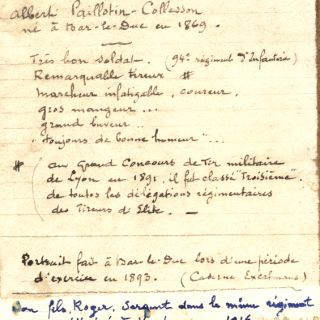 Albert Paillotin-Collesson
né à Bar-le-Duc en 1869.
Très bon soldat. (94e régiment d'Infanterie)
Remarquable tireur #
Marcheur infatigable, coureur.
gros mangeur...
grand buveur..
toujours de bonne humeur"...
# (au Grand Concours de Tir militaire
de Lyon en 1891, il fut classé Troisième
de toutes les délégations régimentaires
des Tireurs d'Elite. —
Portrait fait à Bar-le-Duc lors d'une période
d'exercice en 1893. (Caserne Excelmans)
Son fils, Roger, Sergent dans le même régiment